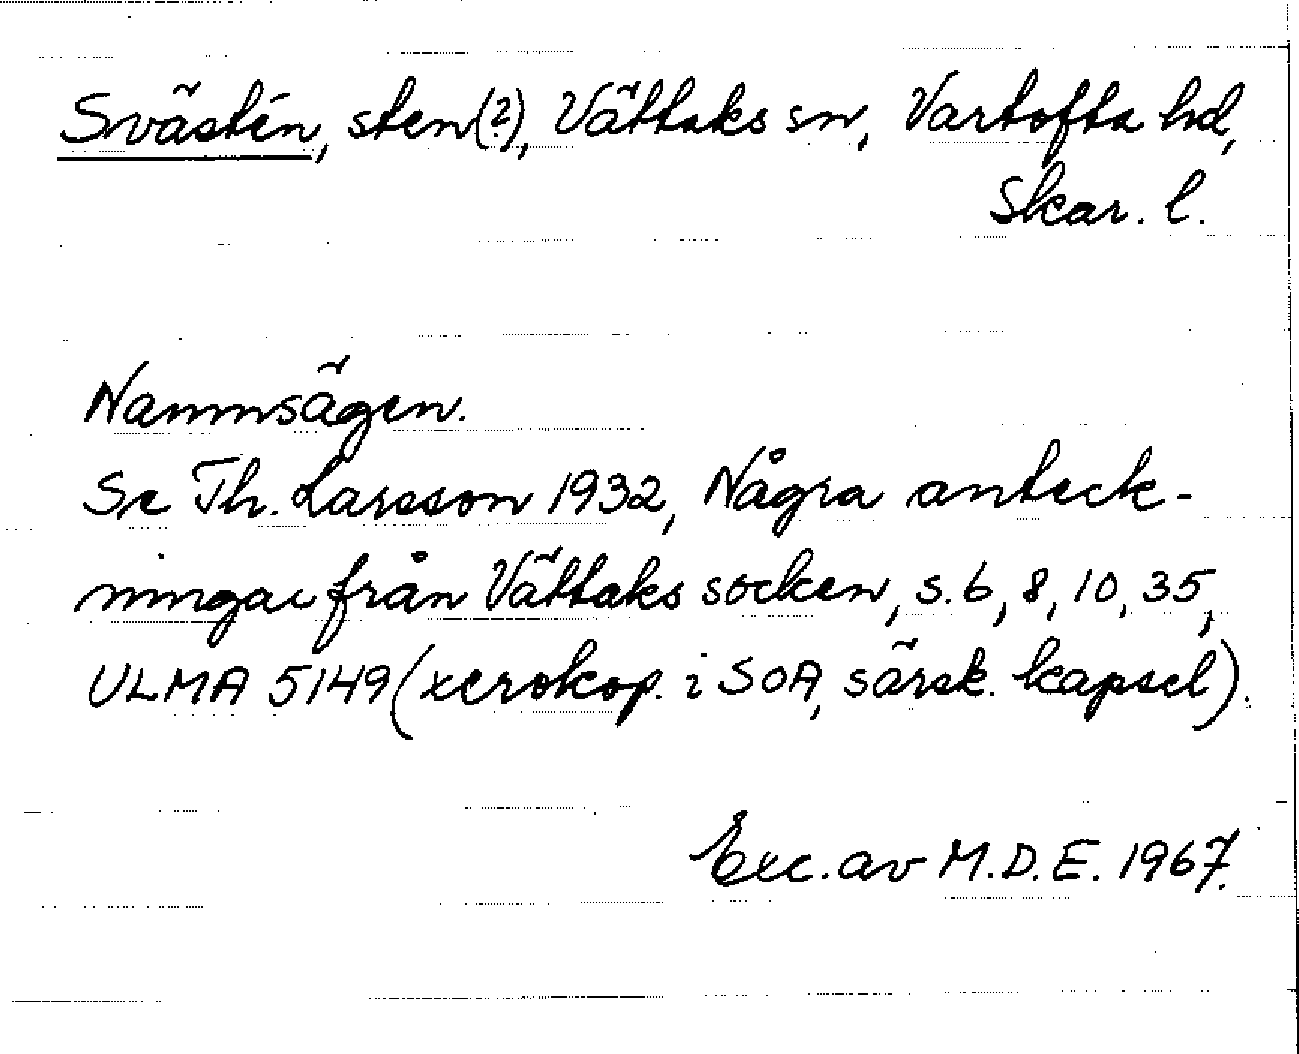 Svästén, sten(?), Vättaks sn, Vartofta hd,
Skar. l.
Namnsägen.
Se Th. Larsson 1932, Några anteck-
ningar från Vättaks socken, s. 6, 8, 10, 35,
ULMA 5149 (xerokop. i SOA, särsk. kapsel).
Exc. av M.D.E. 1967.